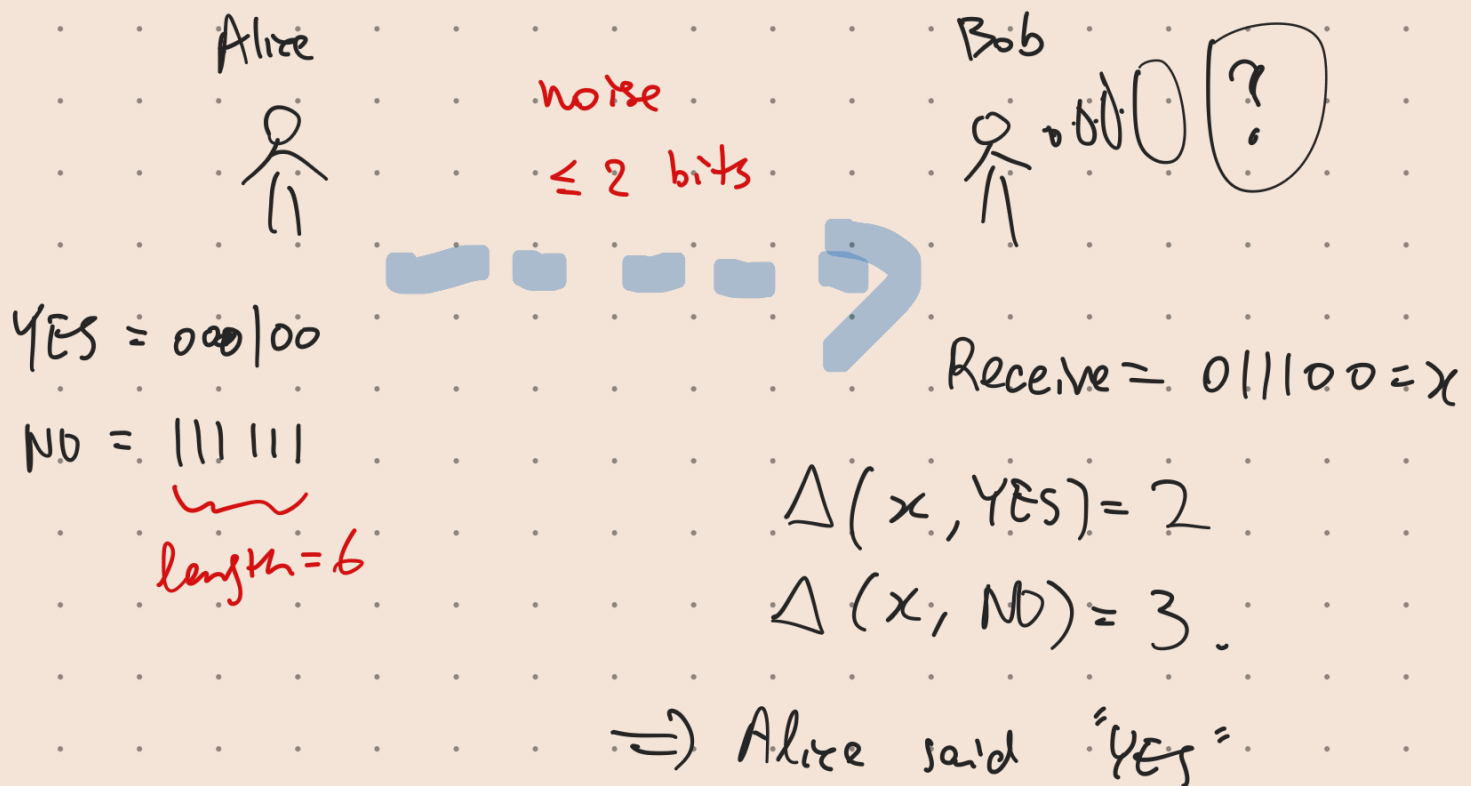 Alice
Bob
noise
≤ 2 bits
?
YES = 000100
NO = 111111
length=6
Receive = 011100 = x
Δ(x, YES) = 2
Δ(x, NO) = 3.
⇒ Alice said "YES"